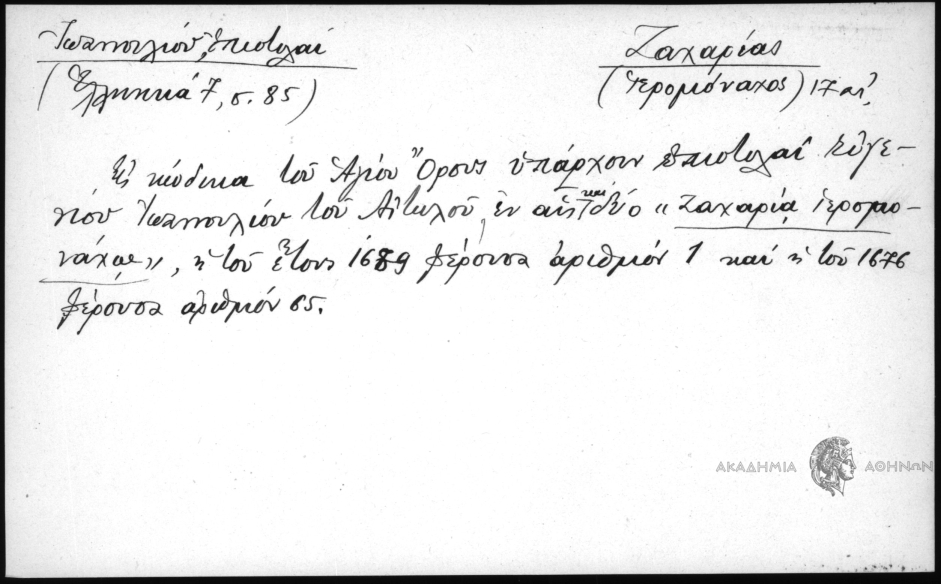 Ἰωαννουλίου, ἐπιστολαί
(Ἑλληνικά 7, σ. 85)
Ζαχαρίας
(Ἱερομόναχος) 17 αἰ.
Εἰς κώδικα τοῦ Ἁγίου Ὄρους ὑπάρχουν ἐπιστολαί Εὐγε-
νίου Ἰωαννουλίου τοῦ Αἰτωλοῦ, ἐν αἷς καὶ δύο «Ζαχαρίᾳ ἱερομο-
νάχῳ», ἡ τοῦ ἔτους 1689 φέρουσα ἀριθμόν 1 καί ἡ τοῦ 1676
φέρουσα ἀριθμόν 65.
ΑΚΑΔΗΜΙΑ ΑΘΗΝΩΝ